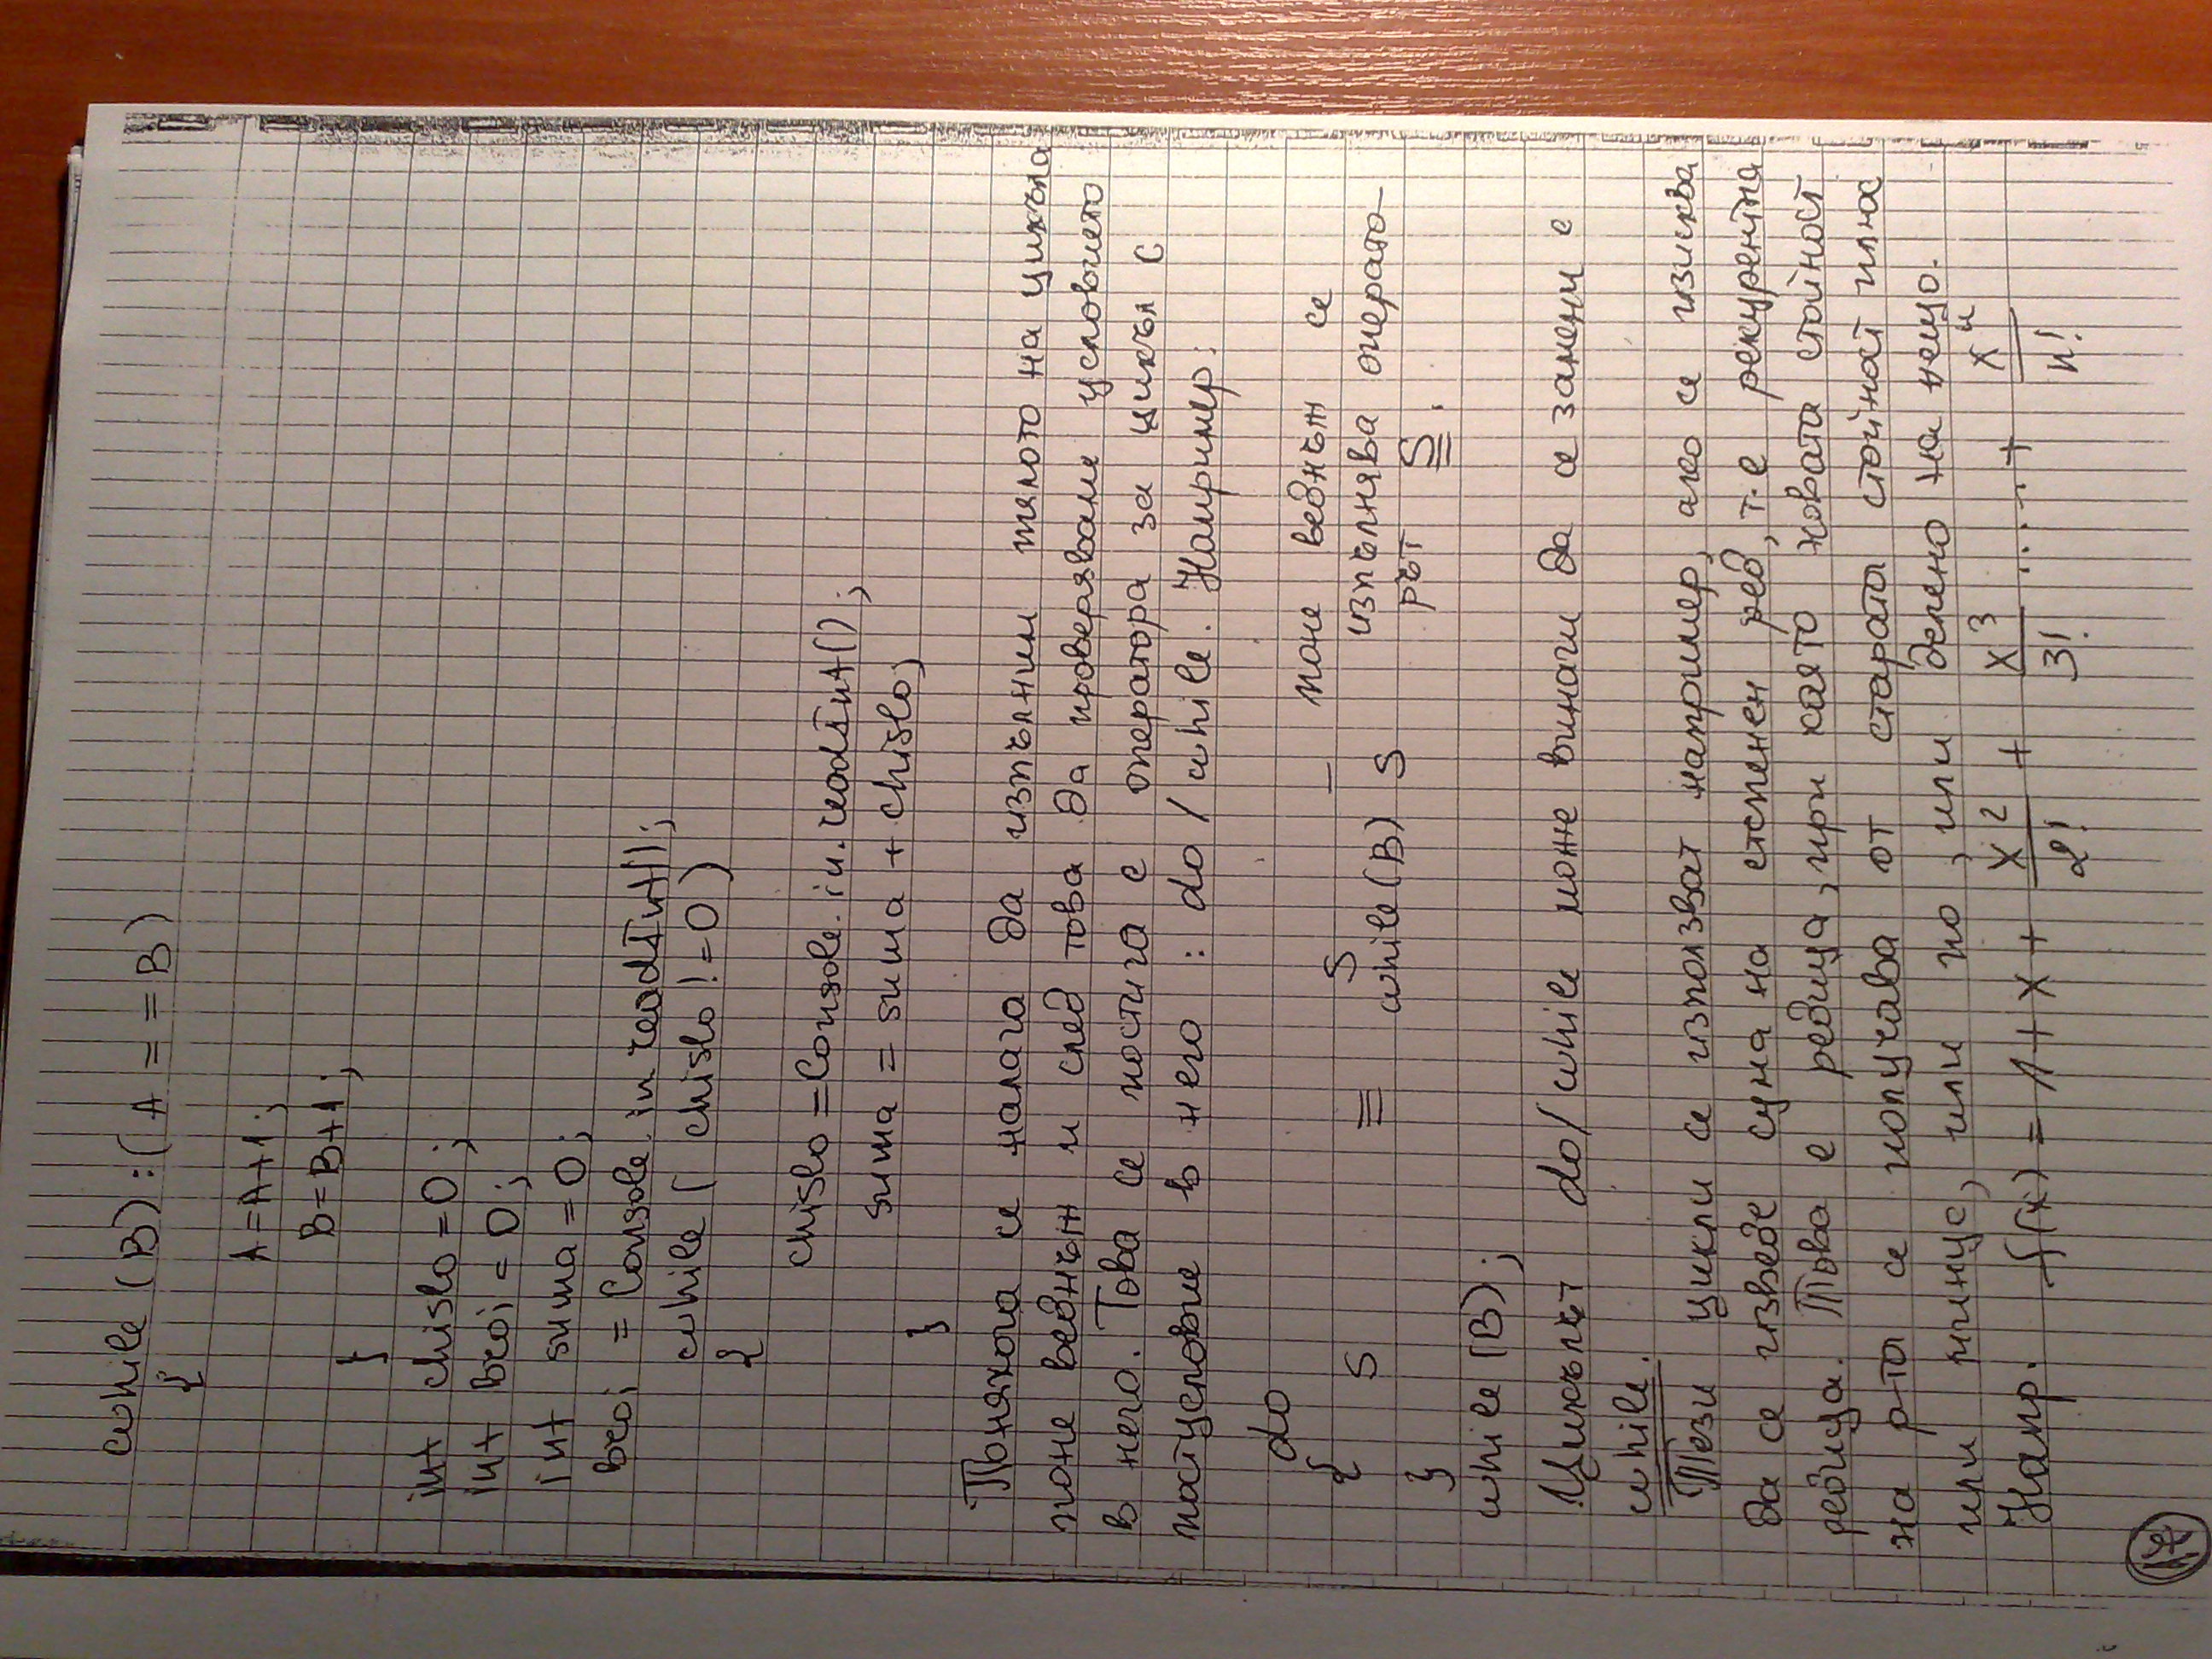 while (B) : ( A = = B )
{
A = A+1 ;
B = B+1 ;
}
int chislo = 0 ;
int broi = 0 ;
int suma = 0 ;
broi = Console. in readInt();
while ( chislo ! = 0 )
{
chislo = Console. in. readInt() ;
suma = suma + chislo ;
}
Понякога се налага да изпълним тялото на цикъла
поне веднъж и след това да проверяваме условието
в него. Това се постига с оператора за цикъл с
постусловие в него : do / while. Например:
do
{ S ≡ S – поне веднъж се
while (B) S изпълнява операто-
} рът S.
while (B) ;
Цикълът do / while може винаги да се замени с
while.
Тези цикли се използват например, ако се изисква
да се изведе сума на степенен ред, т.е рекурентна
редица. Това е редица, при която новата стойност
на р-та се получава от старата стойност плюс
или минус, или по, или делено на нещо.
Напр. f(x) = 1 + x + x²/2! + x³/3! .... + xⁿ/n!
17